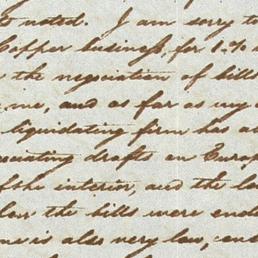 noted. I am sorry to
Copper business, for 1.%
the negociation of bills
me, and as far as my
liquidating firm has
drafts on Europ
of the interior, and the
the bills were end
is also very low,